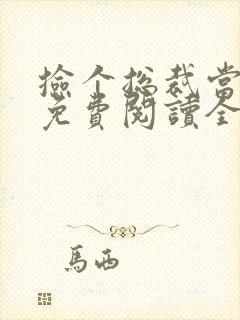 撿个总裁當
免費閱讀全
馬西